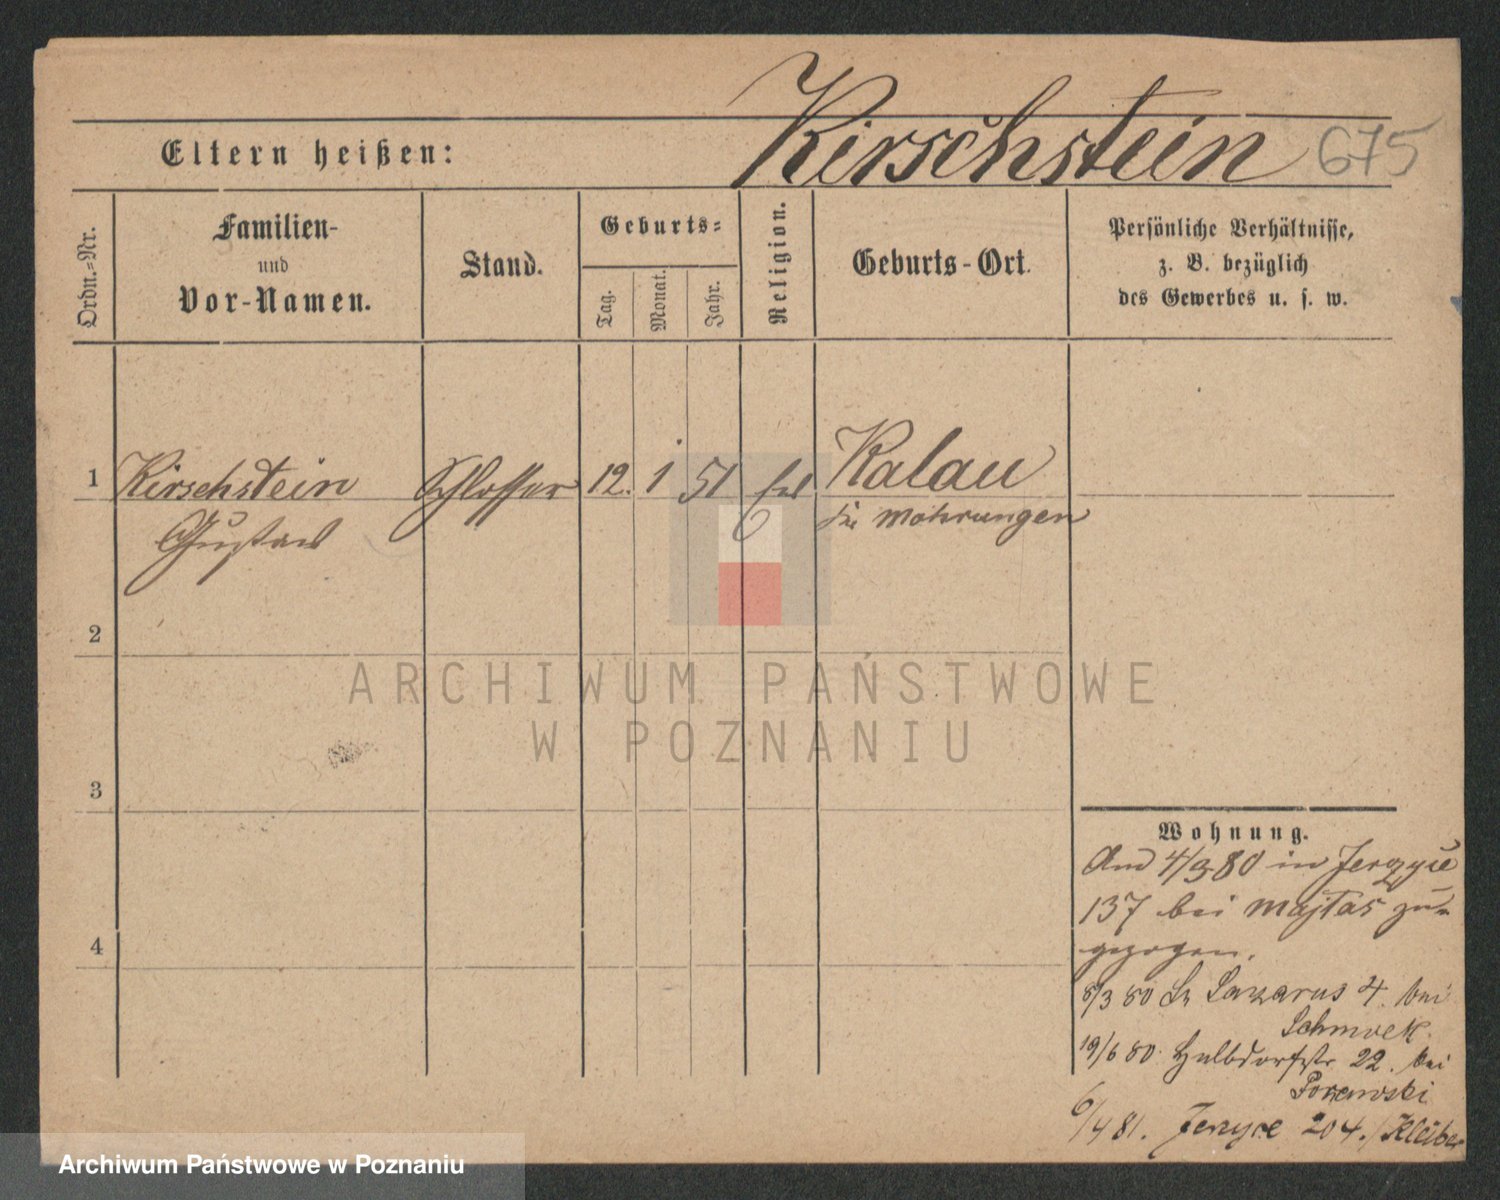 Kirschstein 675
Eltern heißen:
Ordn.-Nr.
Familien-
und
Vor-Namen.
Stand.
Geburts-
Tag.
Monat.
Jahr.
Religion.
Geburts-Ort.
Persönliche Verhältnisse,
z. B. bezüglich
des Gewerbes u. s. w.
1 Kirschstein Schlosser 12. 1 51 Kalau
Gustav Mohrungen
2
3
4
Wohnung.
4/3 80 in Jerzyce
137 bei Majtas zu-
gezogen.
8/3 80 St Lazarus 4. bei
Schmock.
19/6 80 Halbdorfstr 22. bei
6/4 81. Jerzyce 204./Kleiber
ARCHIWUM PAŃSTWOWE
W POZNANIU
Archiwum Państwowe w Poznaniu